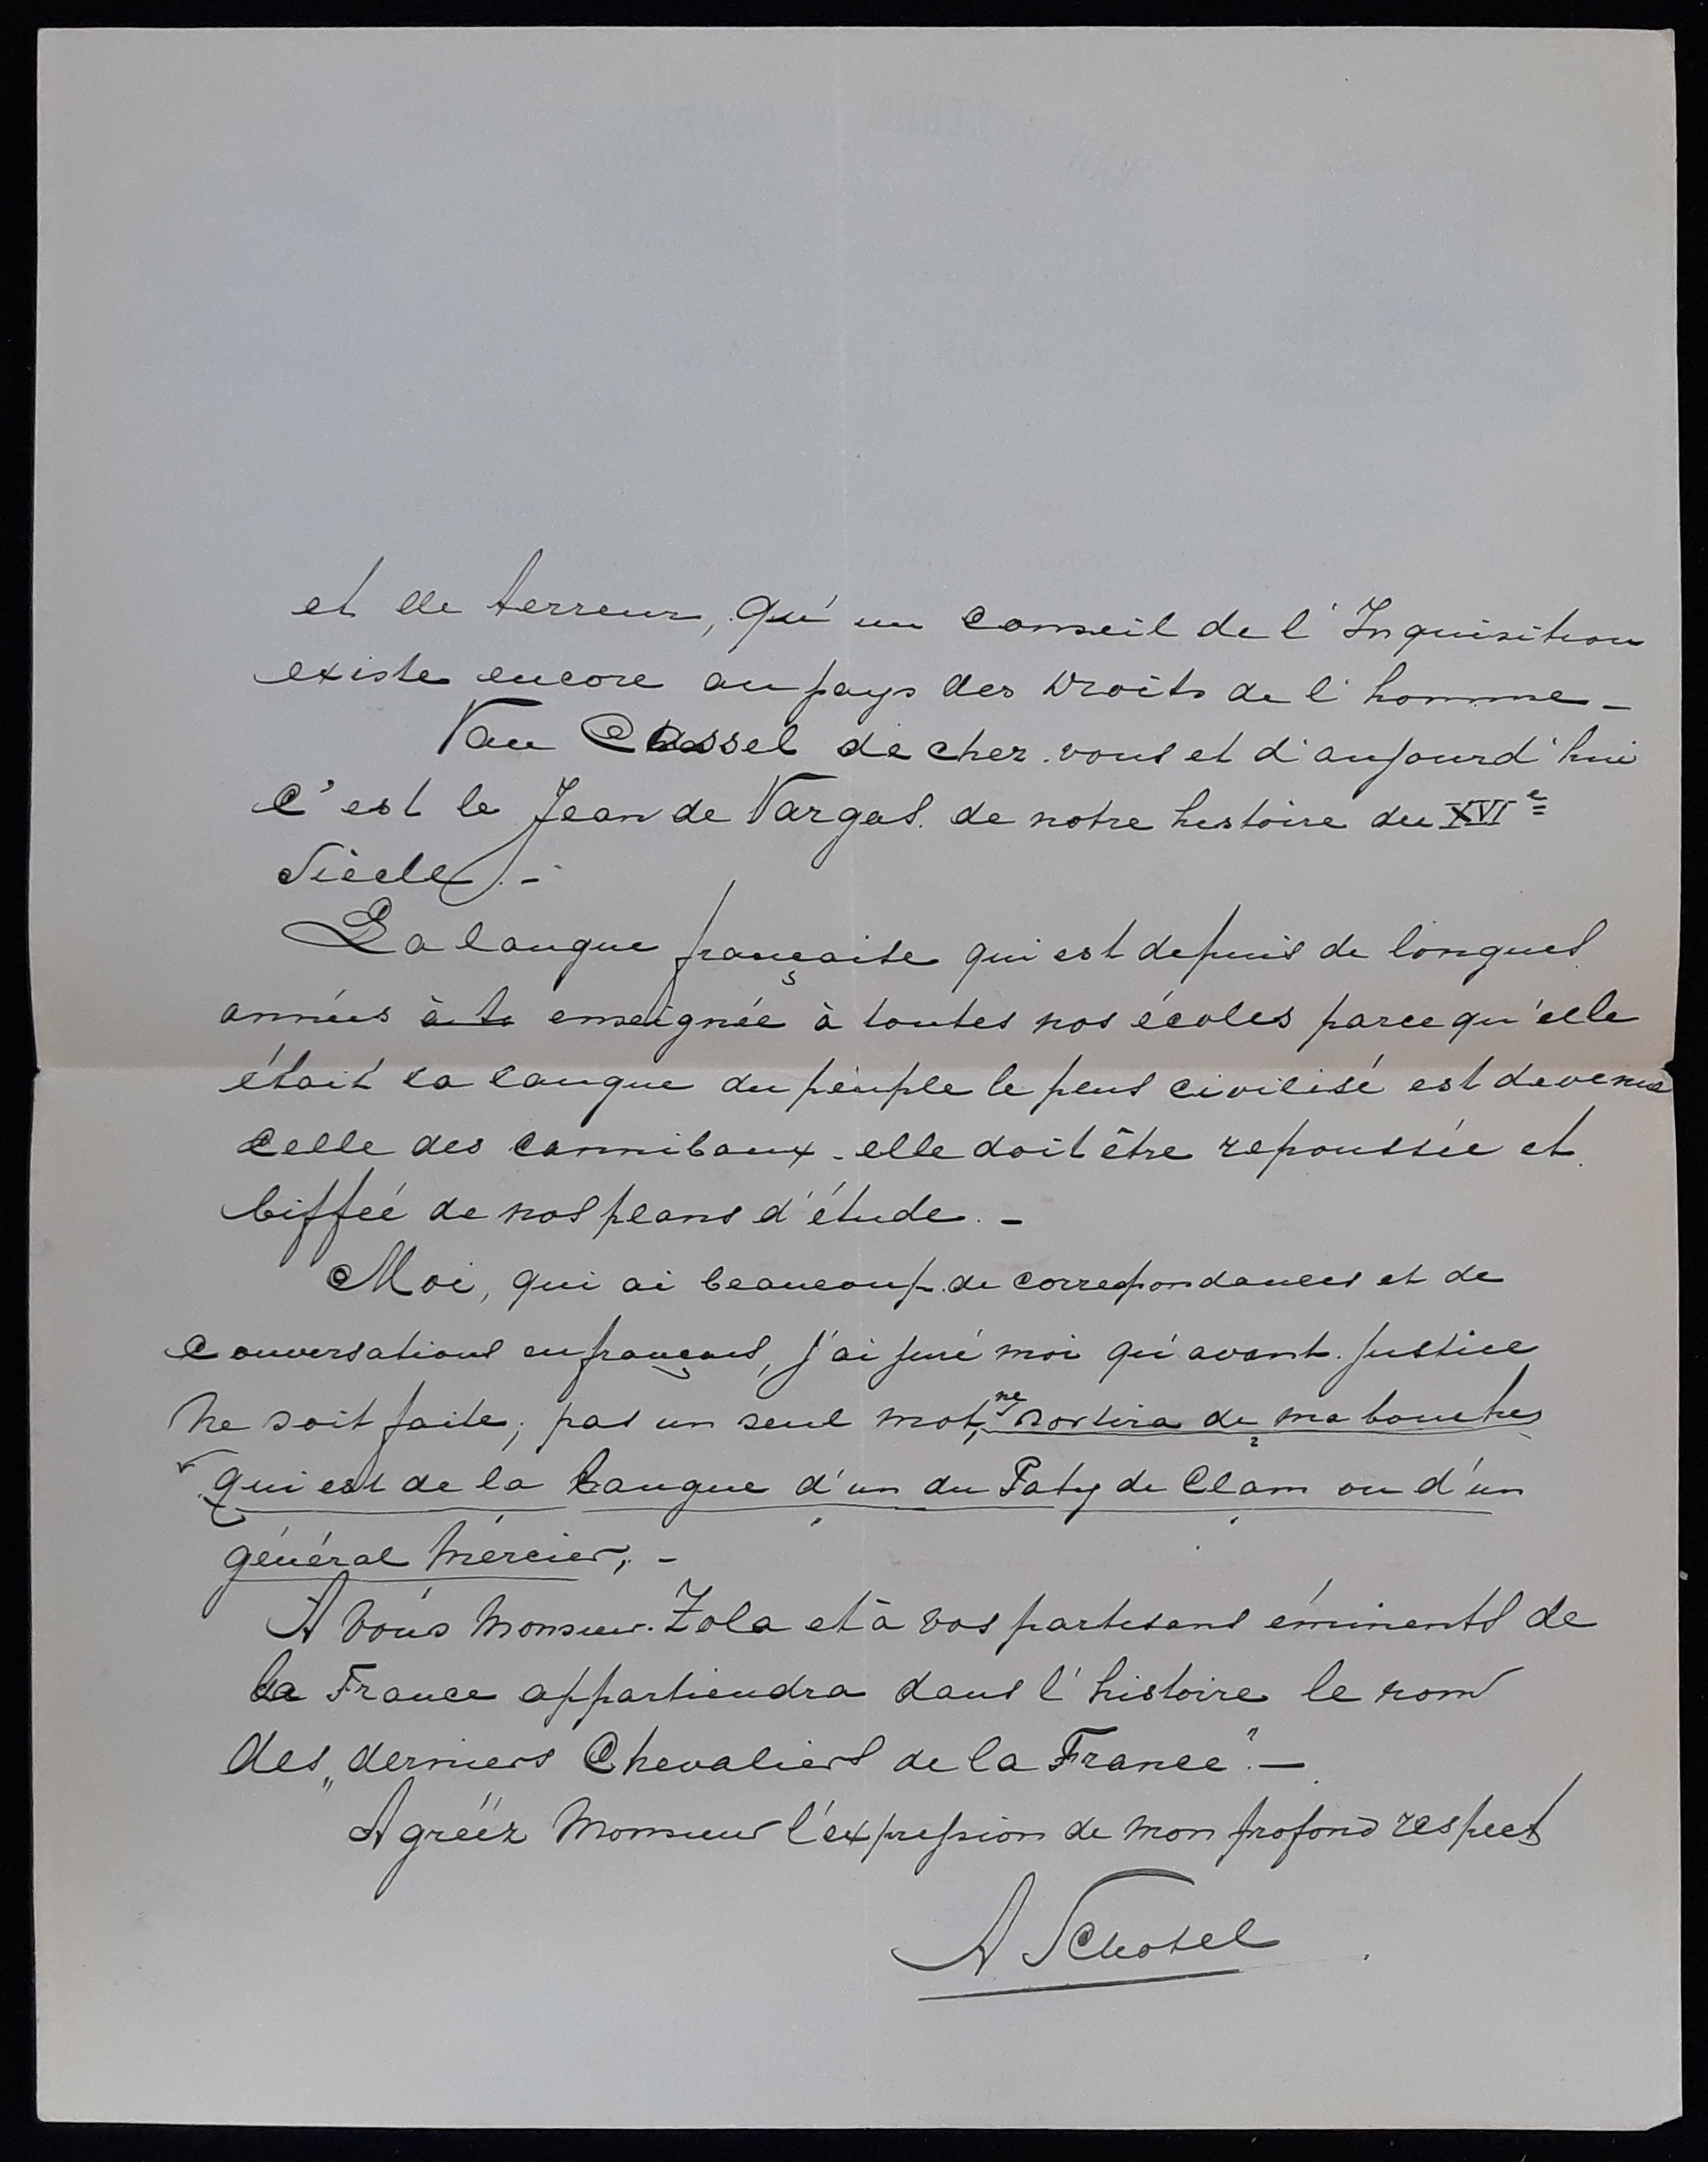 et de terreur, qu'un conseil de l'Inquisition
existe encore au pays des Droits de l'homme -
Van Cassel de chez vous et d'aujourd'hui
C'est le Jean de Vargas de notre histoire du XVIe
Siècle. -
La langue française qui est depuis de longues
années à to enseignée à toutes nos écoles parce qu'elle
était la langue du peuple le plus civilisé est devenue
celle des cannibaux - elle doit être repoussée et
biffée de nos plans d'étude. -
Moi, qui ai beaucoup de correspondances et de
conversations en français, j'ai juré moi qu'avant justice
ne soit faite, pas un seul mot, ne sortira de ma bouche
qui est de la Langue d'un du Paty de Clam ou d'un
général Mercier, -
A vous Monsieur Zola et à vos partisans éminents de
La France appartiendra dans l'histoire le nom
des „derniers Chevaliers de la France". -
Agréez Monsieur l'expression de mon profond respect
A Schotel